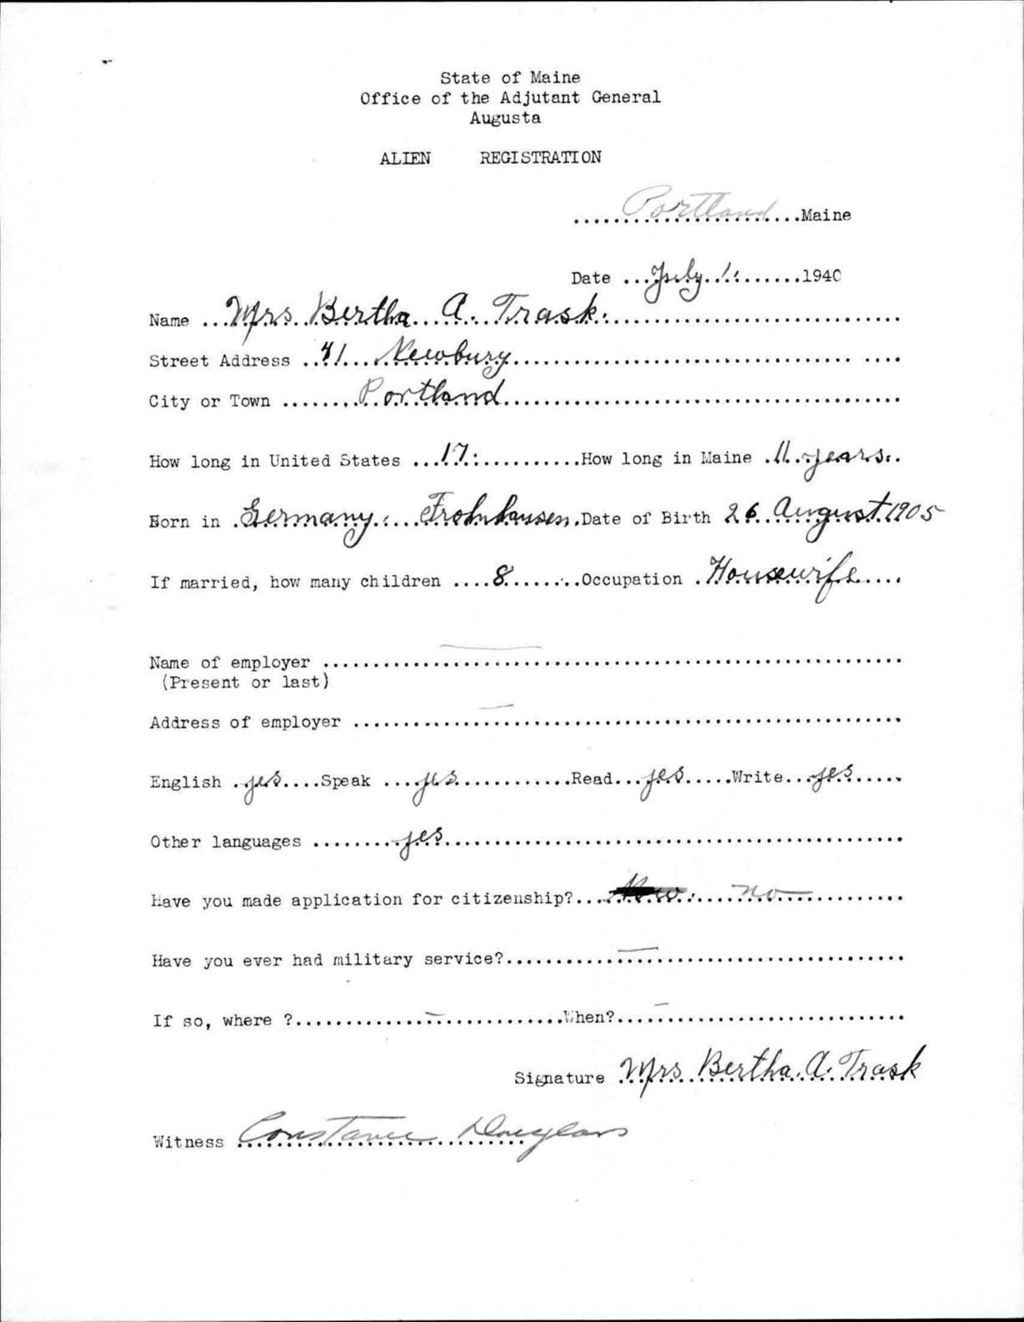 State of Maine
Office of the Adjutant General
Augusta
ALIEN REGISTRATION
Portland Maine
Date July 1. 1940
Name Mrs Bertha A. Trask.
Street Address 41 Newbury
City or Town Portland
How long in United States 17. How long in Maine 11 years.
Born in Germany. Frohnhausen Date of Birth 26 August 1905
If married, how many children 8 Occupation Housewife
Name of employer
(Present or last)
Address of employer
English yes Speak yes Read yes Write yes
Other languages yes
Have you made application for citizenship? no
Have you ever had military service? —
If so, where ? — When? —
Signature Mrs Bertha. A. Trask
Witness Constance Douglass